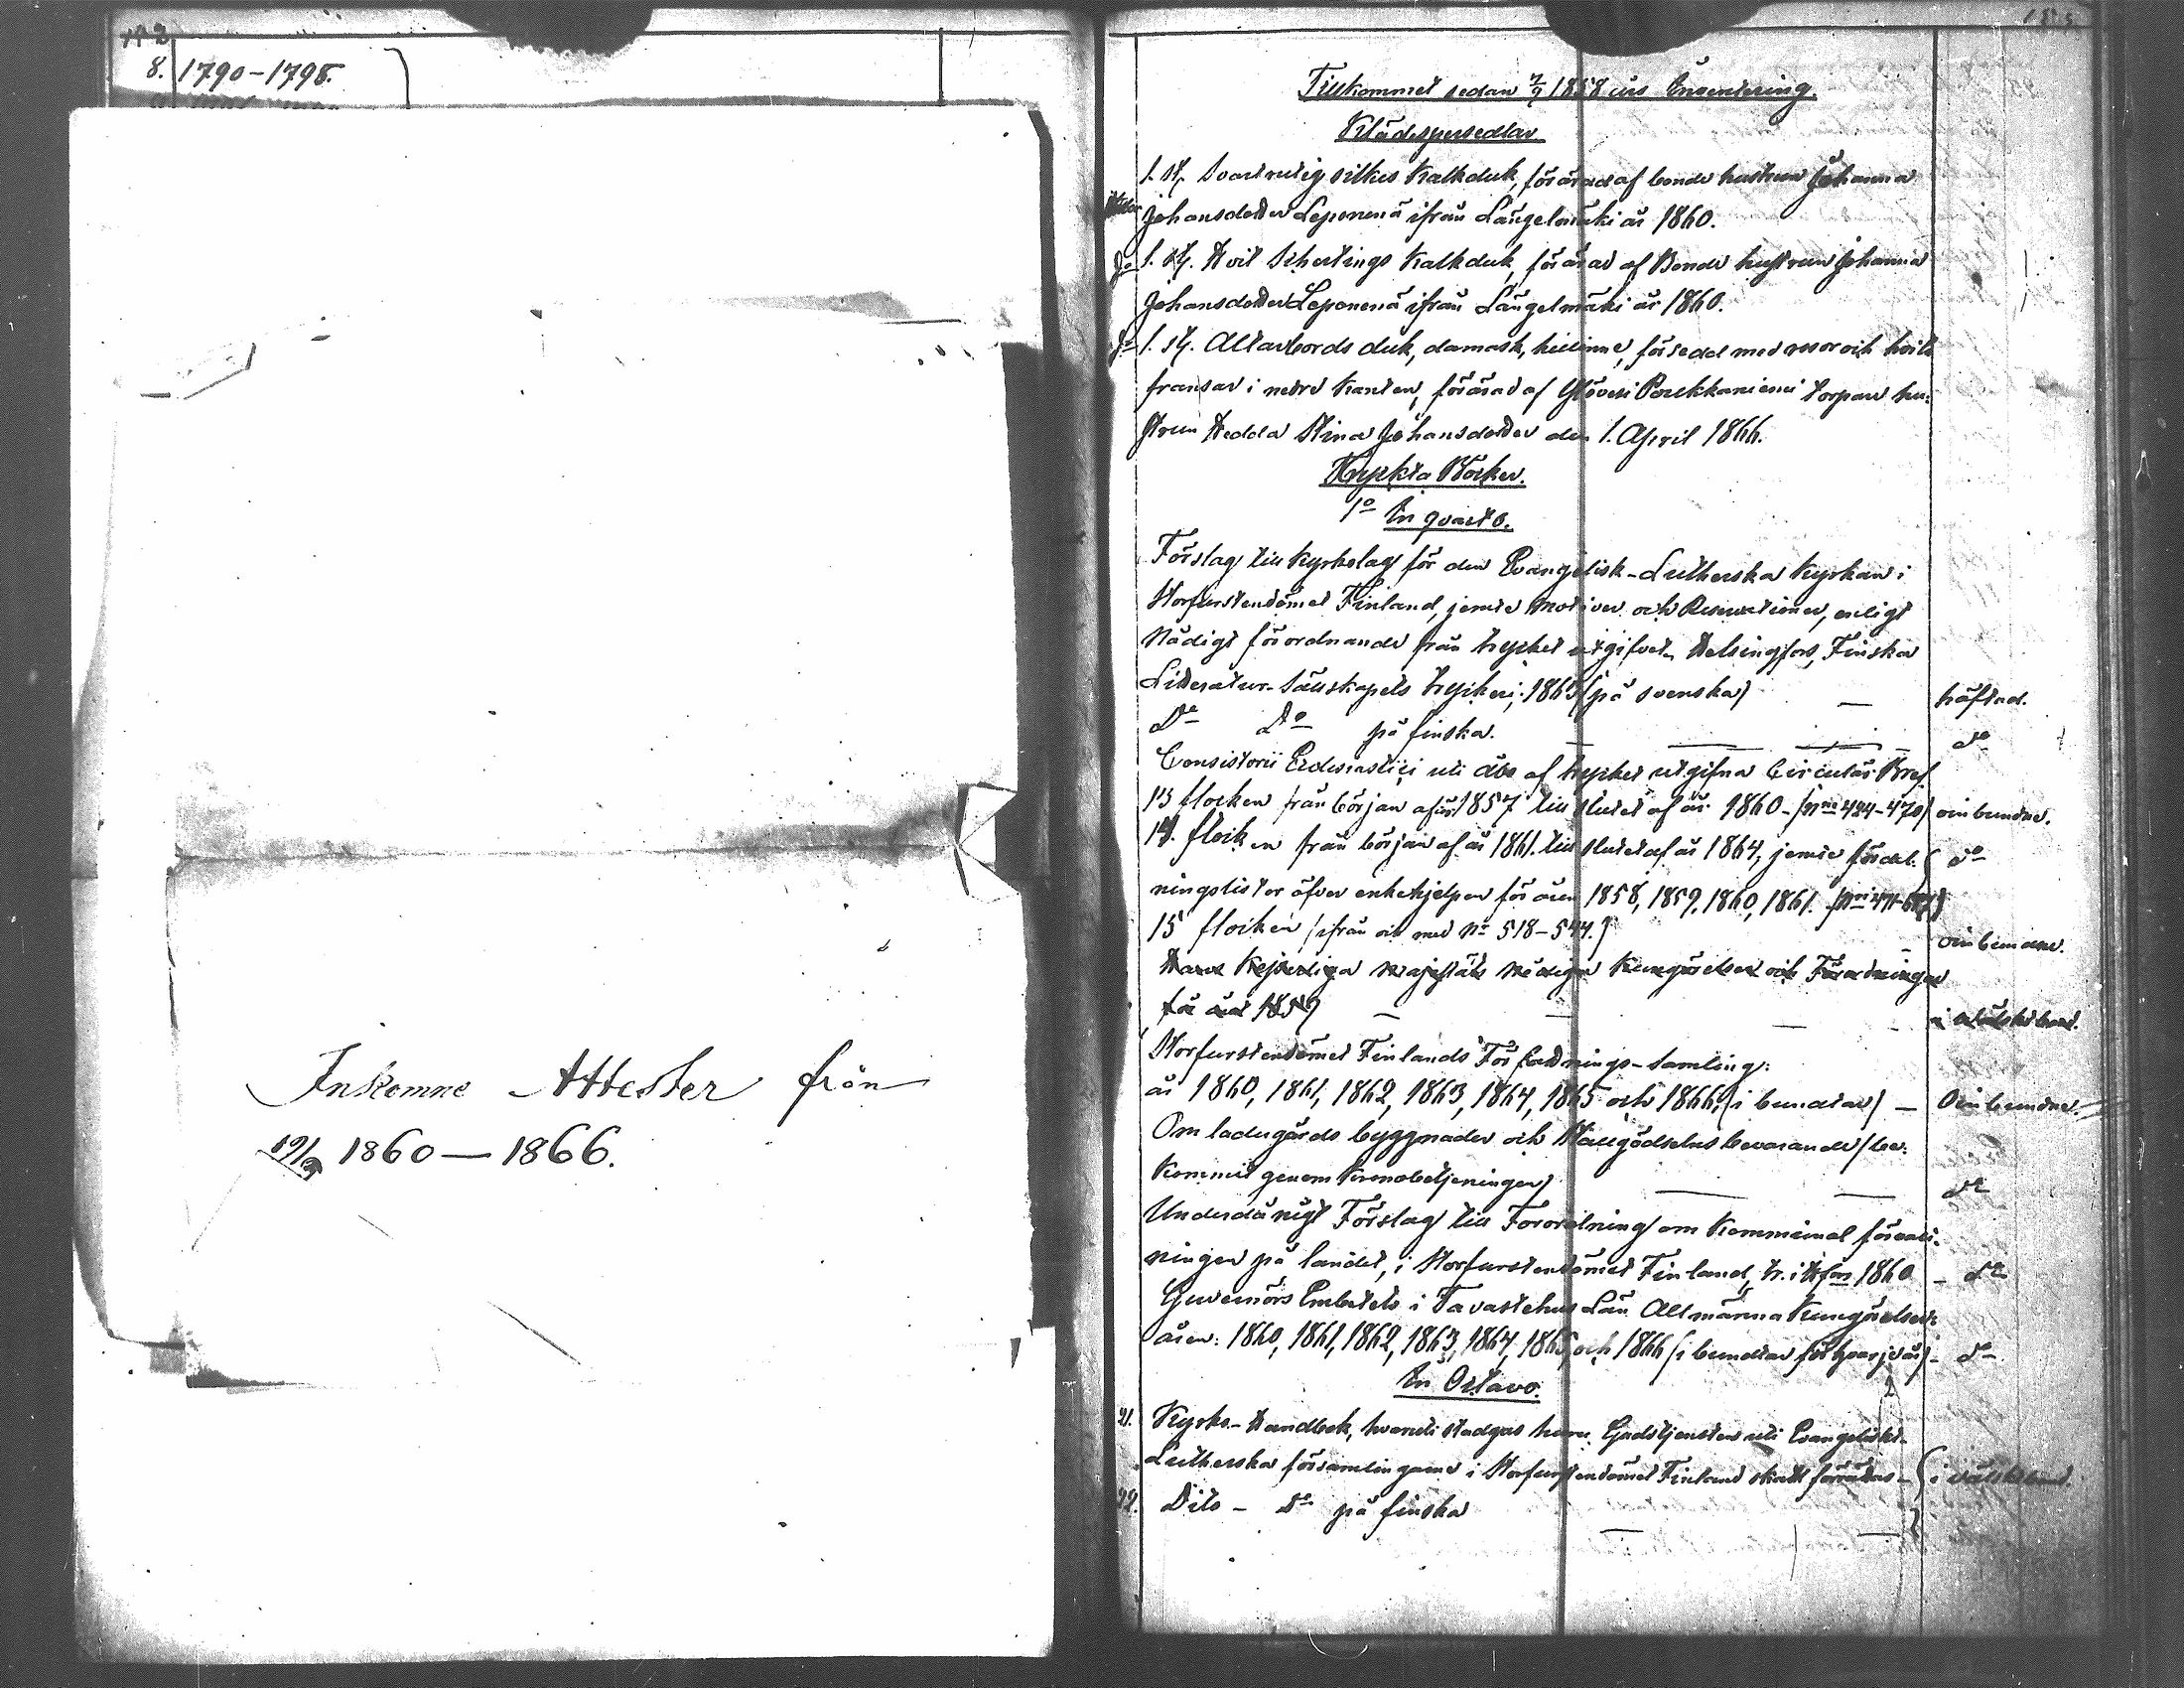 192
8. 1790-1798.
Inkomne Attester från
19/3 1860 — 1866.
Tillkommet sedan 7/9 1858 års Inventering.
Klädespersedlar
1. st. Svartrutig silkes Kalkduk, förärad af bonde hustrun Johanna
Johansdotter Leponenä ifrån Längelmäki år 1860.
do 1. st. Hvit Schertings Kalkduk, förärad af Bonde hustrun Johanna
Johansdotter Leponenä ifrån Längelmäki år 1860.
do 1. st. Altarbords duk, damask, försedd med rosor och hvita
fransar i nedre Kanten, förärad af Torpare hu-
strun Hedda Stina Johansdotter den 1. April 1866.
Tryckta Böcker.
1o In quarto.
Förslag till Kyrkolag för den Evangelisk-Lutherska Kyrkan i
Storfurstendömet Finland, jemte Motiver och Reservationer, enligt
Nådigt förordnande från trycket utgifvet. Helsingfors, Finska
Litteratur-Sällskapets tryckeri, 1863 (på svenska) — häftad.
Do Do på finska. — do
Consistorii Ecclesiastici uti Åbo af trycket utgifna Circulär Bref
13 flocken från början af år 1857 till slutet af år 1860 - (No 424-470) oinbundne.
14. flocken från början af år 1861. till slutet af år 1864, jemte fördel- do
ningslistor öfver enkehjelpen för åren 1858, 1859, 1860, 1861.
15 flocken (ifrån och med No 518-544.) — oinbundne.
Hans Kejserliga Majestäts Nådiga Kungörelser och Förordningar
för året 1859 —
Storfurstendömet Finlands Författnings-Samling:
år 1860, 1861, 1862, 1863, 1864, 1865 och 1866, (i bundtar) — Oinbundne.
Om ladugårds byggnader och Stallgödselns bevarande (be-
kommit genom Kronobetjeningen) — do
Underdånigt Förslag till Förordning om Kommunal förvalt-
ningen på landet, i Storfurstendömet Finland, tr. i Hfors 1860 — do
Guvernörs Embetets i Tavastehus Län Allmänna Kungörelser
åren: 1860, 1861, 1862, 1863, 1864, 1865, och 1866 (i bundtar för hvarje år) — do
In Octavo.
21. Kyrko-Handbok, hvaruti stadgas huru Gudstjensten uti Evangeliskt-
Lutherska församlingarne i Storfurstendömet Finland skall förrättas — i välskt band.
22. Dito - Do på finska